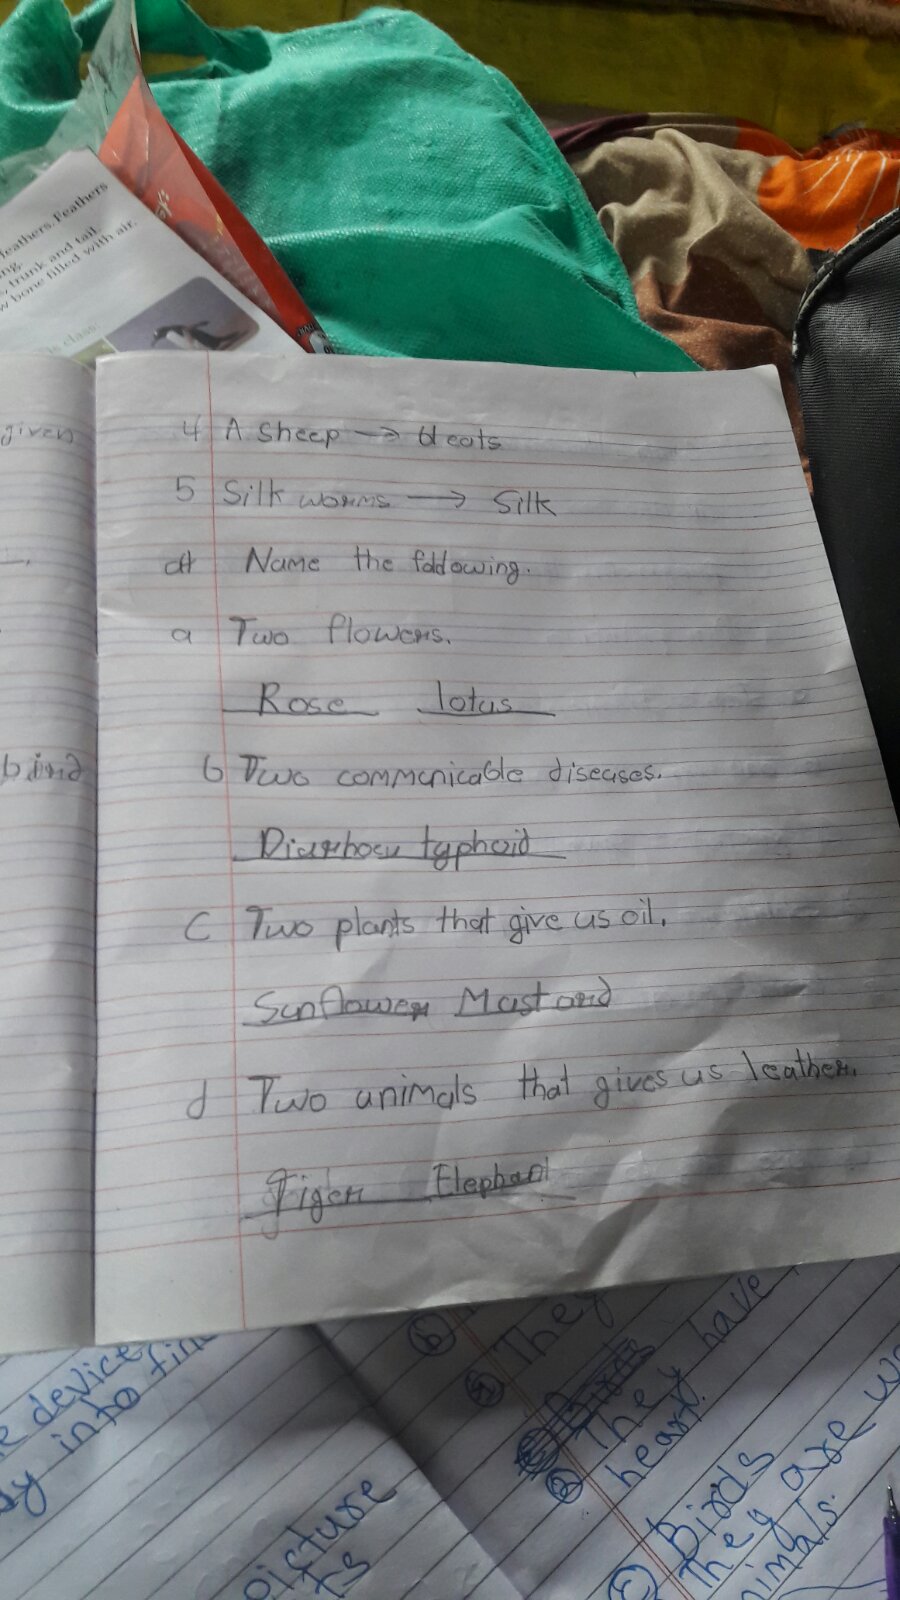 feathers. Feathers
ng.
s, trunk and tail.
w bone filled with air.
class.
given
bird
4 A sheep → bleats
5 Silk worms → Silk
Name the following.
a Two flowers.
Rose lotus
b Two commcnicable diseases.
Diarrhoea typhoid
C Two plants that give us oil.
Sunflower Mustard
d Two animals that gives us leather.
Tiger Elephant
e device
dy into fin
picture
ts
b
They
Birds
They have
heart.
Birds
They are w
nimals.